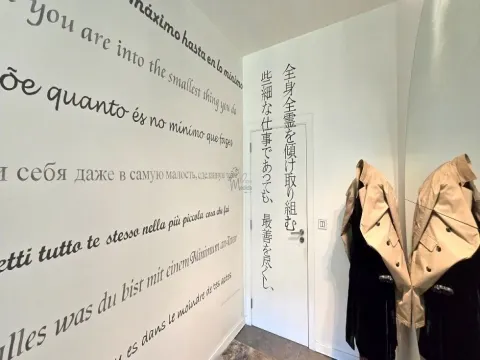 máximo hasta en lo mínimo
you are into the smallest thing you do
õe quanto és no mínimo que fazes
себя даже в самую малость, сделанную
etti tutto te stesso nella più piccola cosa che fai
alles was du bist mit einem Minimum an
es dans le moindre de tes actes
全身全霊を傾け取り組む
些細な仕事であっても、最善を尽くし、